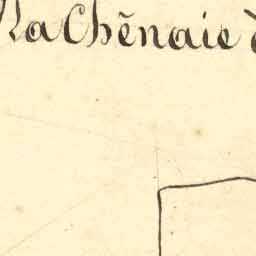 La Chênaie